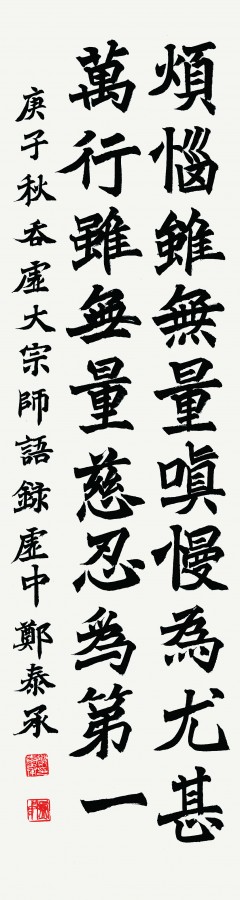 煩惱雖無量嗔慢為尤甚
萬行雖無量慈忍為第一
庚子秋吞虛大宗師語録虛中鄭泰承